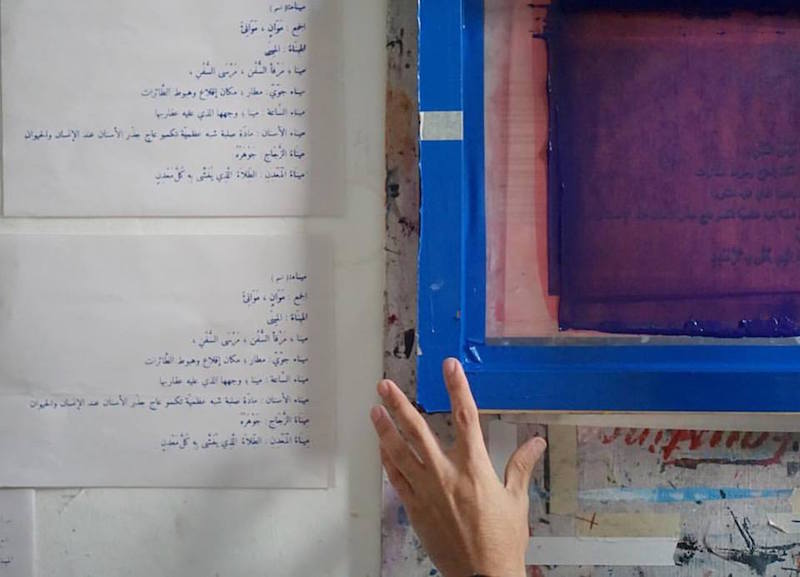 ميناء:( اسم )
الجمع : مَوَانٍ ، مَوَانِئُ
المِينَاءُ : المِينَى
مينا ؛ مَرْفأ السُّفُن ، مَرْسَى السُّفُنِ ،
ميناء جوّيّ : مطار ؛ مكان إقلاع وهبوط الطَّائرات
ميناء السَّاعة : مينا ؛ وجهها الذي عليه عقاربها
ميناء الأسنان : مادّة صلبة شبه عظميّة تكسو عاج جذر الأسنان عند الإنسان والحيوان
مِينَاءُ الزُّجَاجِ : جَوْهَرُهُ
مِينَاءُ الْمَعْدِنِ : الطِّلاَءُ الَّذِي يُغَشَّى بِهِ كُلُّ مَعْدِنٍ
ميناء:( اسم )
الجمع : مَوَانٍ ، مَوَانِئُ
المِينَاءُ : المِينَى
مينا ؛ مَرْفأ السُّفُن ، مَرْسَى السُّفُنِ ،
ميناء جوّيّ : مطار ؛ مكان إقلاع وهبوط الطَّائرات
ميناء السَّاعة : مينا ؛ وجهها الذي عليه عقاربها
ميناء الأسنان : مادّة صلبة شبه عظميّة تكسو عاج جذر الأسنان عند الإنسان والحيوان
مِينَاءُ الزُّجَاجِ : جَوْهَرُهُ
مِينَاءُ الْمَعْدِنِ : الطِّلاَءُ الَّذِي يُغَشَّى بِهِ كُلُّ مَعْدِنٍ